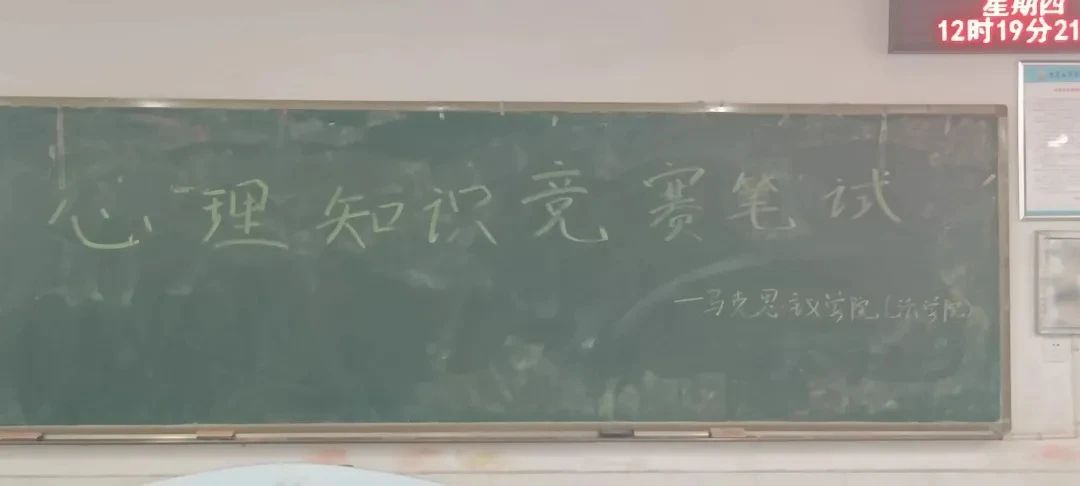 星期四
12时19分21
心理知识竞赛笔试
—马克思主义学院(法学院)